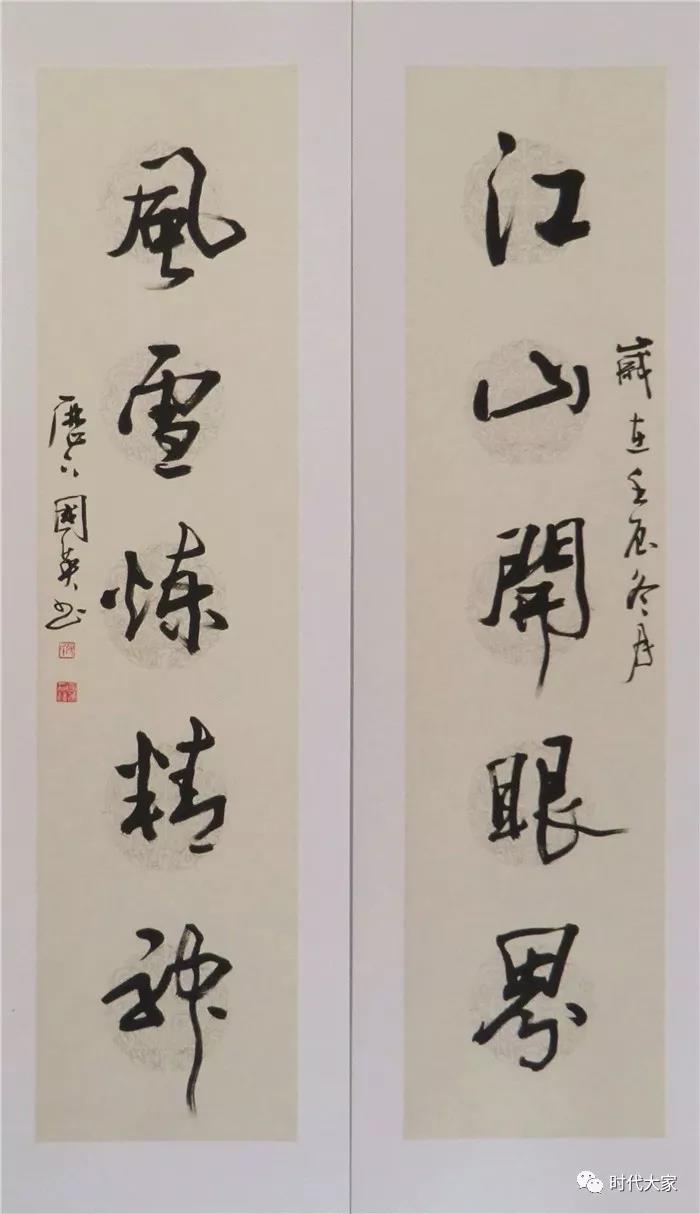 歲在壬辰冬月
江山開眼界
風雪炼精神
國英书
时代大家